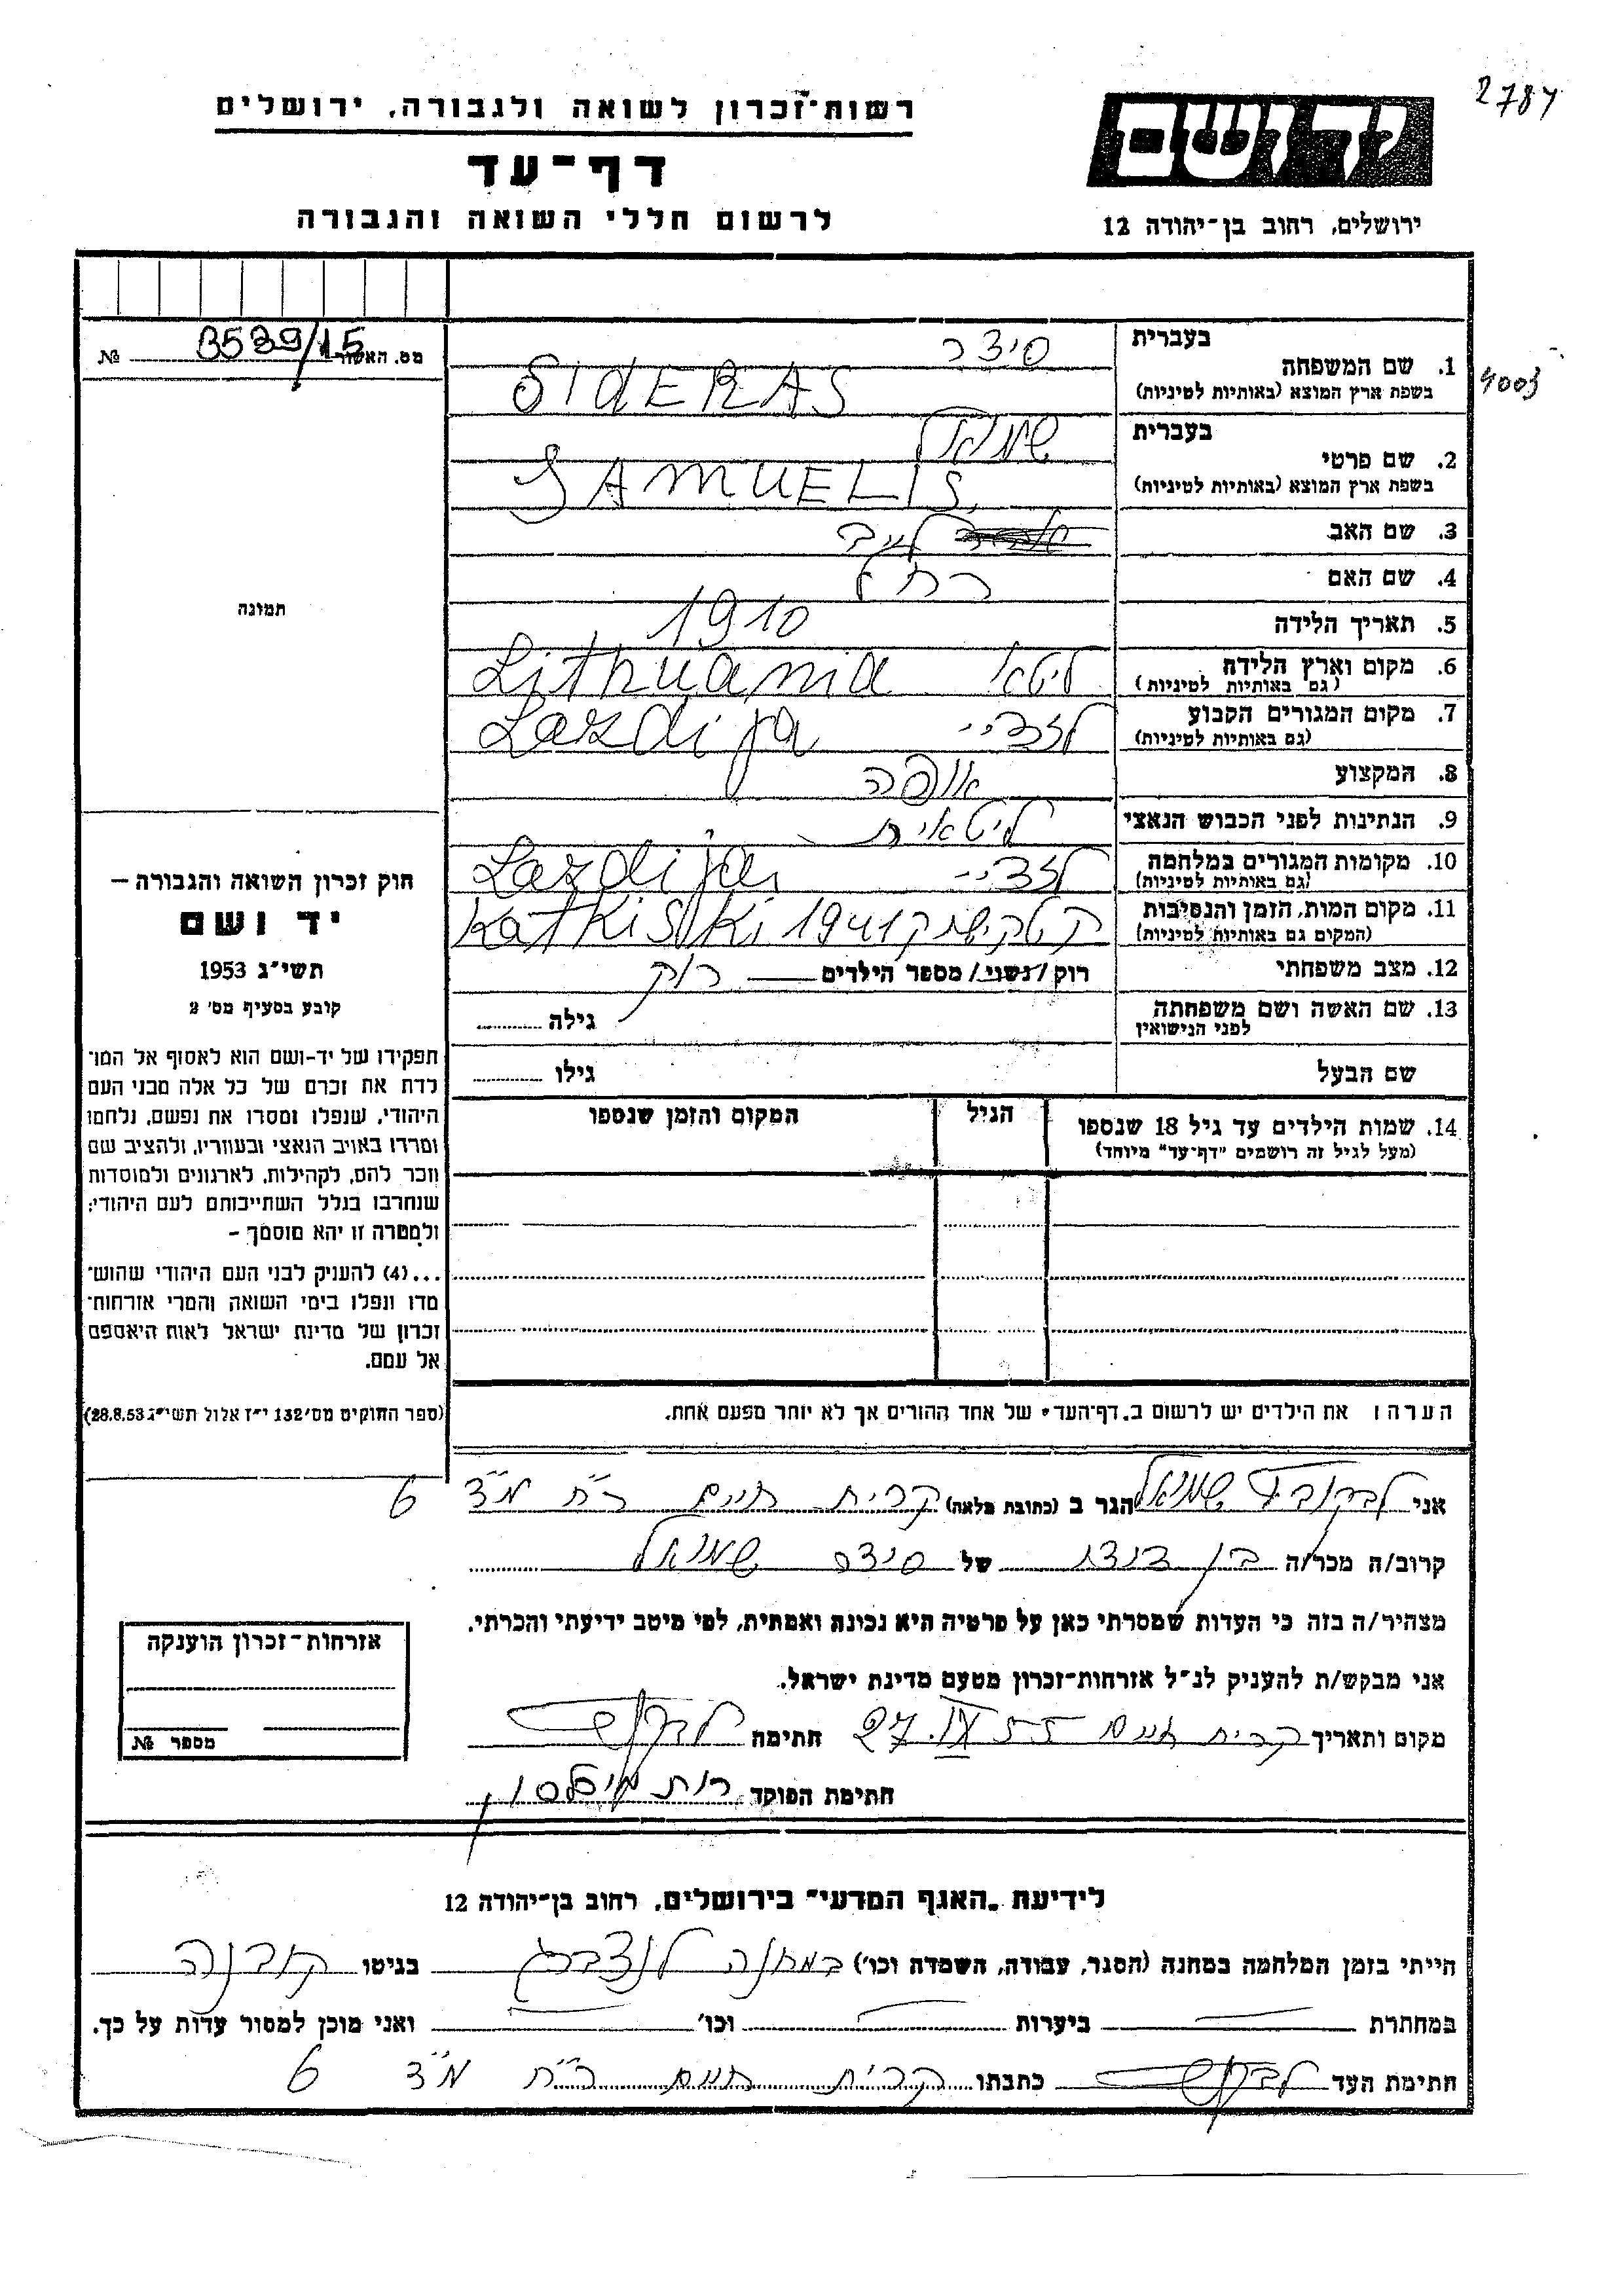 2784
רשות־זכרון לשואה ולגבורה, ירושלים
ידושם
דף־עד
לרשום חללי השואה והגבורה
ירושלים, רחוב בן־יהודה 12
מס. האשור B539/15 №
בעברית סידר
1. שם המשפחה
בשפת ארץ המוצא (באותיות לטיניות) SIDERAS
4003
בעברית שמואל
2. שם פרטי
בשפת ארץ המוצא (באותיות לטיניות) SAMUELIS
3. שם האב לייב
4. שם האם רחל
תמונה
5. תאריך הלידה 1910
6. מקום וארץ הלידה ליטא Lithuania
(גם באותיות לטיניות)
7. מקום המגורים הקבוע לזדיי Lazdija
(גם באותיות לטיניות)
8. המקצוע אופה
9. הנתינות לפני הכבוש הנאצי ליטאית
10. מקומות המגורים במלחמה לזדיי Lazdija
(גם באותיות לטיניות)
11. מקום המות, הזמן והנסיבות 1941 Katkiski
(המקום גם באותיות לטיניות)
12. מצב משפחתי רוק / נשוי / מספר הילדים רוק
13. שם האשה ושם משפחתה גילה
לפני הנישואין
שם הבעל גילו
חוק זכרון השואה והגבורה —
יד ושם
תשי״ג 1953
קובע בסעיף מס׳ 2
תפקידו של יד-ושם הוא לאסוף אל המו־
לדת את זכרם של כל אלה מבני העם
היהודי, שנפלו ומסרו את נפשם, נלחמו
ומרדו באויב הנאצי ובעוזריו, ולהציב שם
וזכר להם, לקהילות, לארגונים ולמוסדות
שנחרבו בגלל השתייכותם לעם היהודי;
ולמטרה זו יהא מוסמך –
...(4) להעניק לבני העם היהודי שהוש־
מדו ונפלו בימי השואה והמרי אזרחות־
זכרון של מדינת ישראל לאות היאספם
אל עמם.
(ספר החוקים מס׳ 132 י״ז אלול תשי״ג 28.8.53)
14. שמות הילדים עד גיל 18 שנספו הגיל המקום והזמן שנספו
(מעל לגיל זה רושמים "דף־עד" מיוחד)
הערה: את הילדים יש לרשום ב„דף־העד" של אחד ההורים אך לא יותר מפעם אחת.
אני שמואל הגר ב (כתובת מלאה) קרית חיים ר״ח מ״ד 6
קרוב/ה מכר/ה בן דודו של סידר שמואל
מצהיר/ה בזה כי העדות שמסרתי כאן על פרטיה היא נכונה ואמתית, לפי מיטב ידיעתי והכרתי.
אני מבקש/ת להעניק לנ״ל אזרחות־זכרון מטעם מדינת ישראל.
מקום ותאריך קרית חיים 27.IX.55 חתימה
חתימת הפוקד רות
אזרחות־זכרון הוענקה
מספר №
לידיעת „האגף המדעי" בירושלים, רחוב בן־יהודה 12
הייתי בזמן המלחמה במחנה (הסגר, עבודה, השמדה וכו׳) במחנה לנדסברג בגיטו קובנה
במחתרת ביערות וכו׳ ואני מוכן למסור עדות על כך.
חתימת העד כתבתו קרית חיים ר״ח מ״ד 6